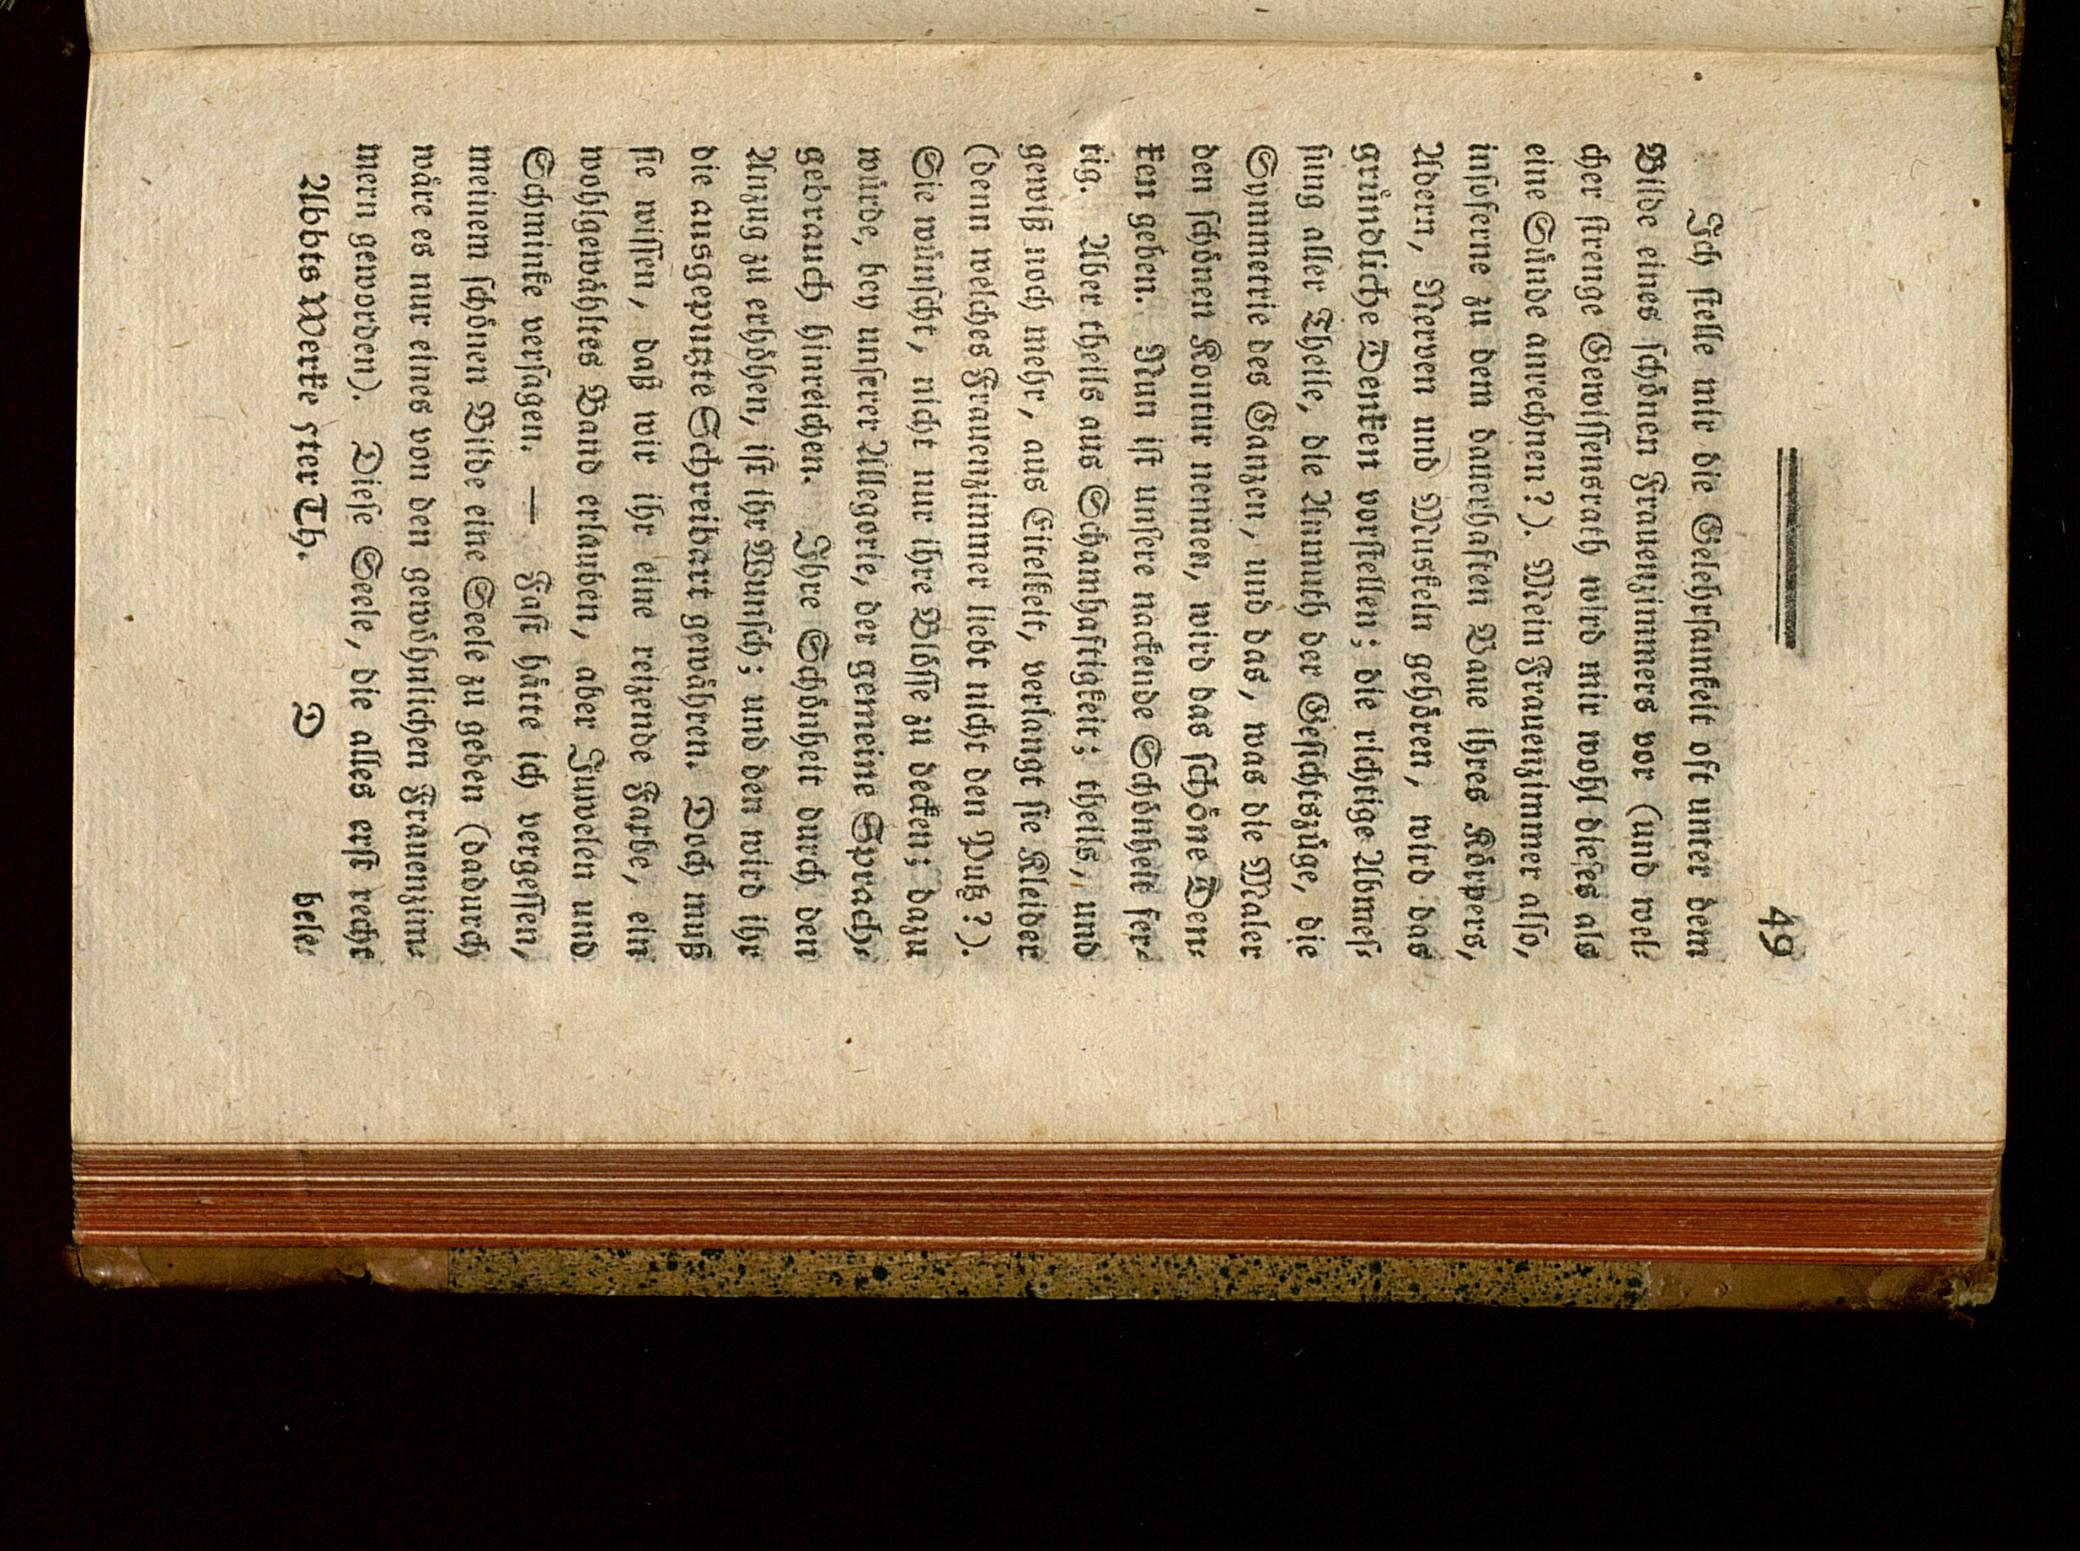 49
Ich ſtelle mir die Gelehrſamkeit oft unter dem
Bilde eines ſchönen Frauenzimmers vor (und wel-
cher ſtrenge Gewiſſensrath wird mir wohl dieſes als
eine Sünde anrechnen?). Mein Frauenzimmer alſo,
inſoferne zu dem dauerhaften Baue ihres Körpers,
Adern, Nerven und Muskeln gehören, wird das
gründliche Denken vorſtellen; die richtige Abmeſ-
ſung aller Theile, die Anmuth der Geſichtszüge, die
Symmetrie des Ganzen, und das, was die Maler
den ſchönen Kontur nennen, wird das ſchöne Den-
ken geben. Nun iſt unſere nackende Schönheit fer-
tig. Aber theils aus Schamhaftigkeit; theils, und
gewiß noch mehr, aus Eitelkeit, verlangt ſie Kleider
(denn welches Frauenzimmer liebt nicht den Putz?).
Sie wünſcht, nicht nur ihre Blöſſe zu decken; dazu
würde, bey unſerer Allegorie, der gemeine Sprach-
gebrauch hinreichen. Ihre Schönheit durch den
Anzug zu erhöhen, iſt ihr Wunſch; und den wird ihr
die ausgeputzte Schreibart gewähren. Doch muß
ſie wiſſen, daß wir ihr eine reizende Farbe, ein
wohlgewähltes Band erlauben, aber Juwelen und
Schminke verſagen. — Faſt hätte ich vergeſſen,
meinem ſchönen Bilde eine Seele zu geben (dadurch
wäre es nur eines von den gewöhnlichen Frauenzim-
mern geworden). Dieſe Seele, die alles erſt recht
Abbts Werke 5ter Th. D bele-